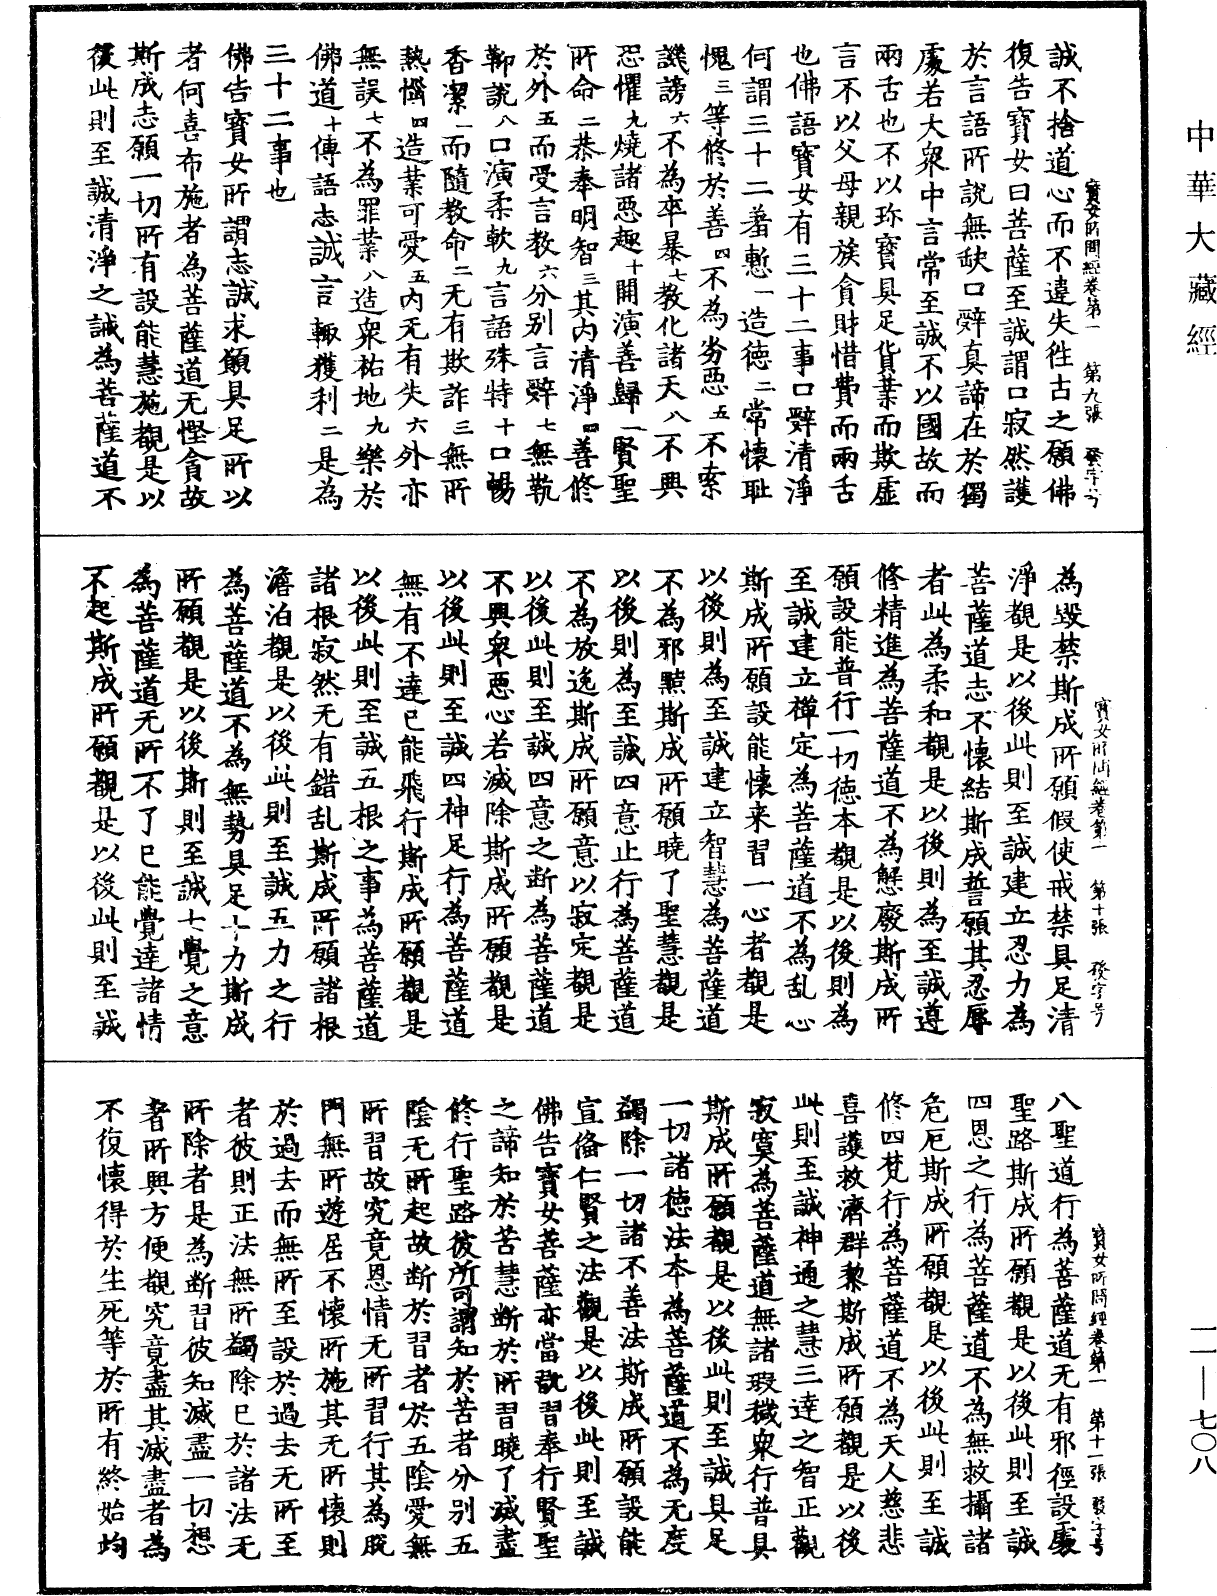 中華大藏經
寶女所問經卷第一　第九張　發字号
誠不捨道心而不違失往古之願佛
復告寶女曰菩薩至誠謂口寂然護
於言語所說無缺口辭真諦在於獨
處若大衆中言常至誠不以國故而
兩舌也不以珎寶具足貨業而欺虛
言不以父母親族貪財惜費而兩舌
也佛語寶女有三十二事口辭清淨
何謂三十二羞慙一造德二常懷耻
愧三等修於善四不為劣惡五不索
譏謗六不為卒暴七教化諸天八不興
恐懼九燒諸惡趣十開演善歸一賢聖
所命二恭奉明智三其内清淨四善修
於外五而受言教六分别言辭七無䩭
䩭說八口演柔軟九言語殊特十口暢
香潔一而隨教命二无有欺詐三無所
熱惱四造業可愛五内无有失六外亦
無誤七不為罪業八造衆祐地九樂於
佛道十傳語志誠言輙獲利二是為
三十二事也
佛告寶女所謂志誠求願具足所以
者何喜布施者為菩薩道无慳貪故
斯成志願一切所有設能慧施觀是以
後此則至誠清淨之誡為菩薩道不
寶女所問經卷第一　第十張　發字号
為毀禁斯成所願假使戒禁具足清
淨觀是以後此則至誠建立忍力為
菩薩道志不懷結斯成誓願其忍辱
者此為柔和觀是以後則為至誠遵
修精進為菩薩道不為懈廢斯成所
願設能普行一切德本觀是以後則為
至誠建立禪定為菩薩道不為乱心
斯成所願設能懷来習一心者觀是
以後則為至誠建立智慧為菩薩道
不為邪黠斯成所願曉了聖慧觀是
以後則為至誠四意止行為菩薩道
不為放逸斯成所願意以寂定觀是
以後此則至誠四意之斷為菩薩道
不興衆惡心若滅除斯成所願觀是
以後此則至誠四神足行為菩薩道
無有不達已能飛行斯成所願觀是
以後此則至誠五根之事為菩薩道
諸根寂然无有錯乱斯成所願諸根
澹泊觀是以後此則至誠五力之行
為菩薩道不為無勢具足十力斯成
所願觀是以後斯則至誠七覺之意
為菩薩道无所不了已能覺達諸情
不起斯成所願觀是以後此則至誠
寶女所問經卷第一　第十一張　發字号
八聖道行為菩薩道无有邪徑設處
聖路斯成所願觀是以後此則至誠
四恩之行為菩薩道不為無救攝諸
危厄斯成所願觀是以後此則至誠
修四梵行為菩薩道不為天人慈悲
喜護救濟群黎斯成所願觀是以後
此則至誠神通之慧三達之智正觀
寂寞為菩薩道無諸瑕穢衆行普具
斯成所願觀是以後此則至誠具足
一切諸德法本為菩薩道不為无度
蠲除一切諸不善法斯成所願設能
宣俻仁賢之法觀是以後此則至誠
佛告寶女菩薩亦當歡習奉行賢聖
之諦知於苦慧斷於所習曉了滅盡
修行聖路彼所可謂知於苦者分别五
陰无所起故斷於習者於五陰愛無
所習故究竟恩情无所習行其為脫
門無所遊居不懷所施其无所懷則
於過去而無所至設於過去无所至
者彼則正法無所蠲除已於諸法无
所除者是為斷習彼知滅盡一切想
者所興方便觀究竟盡其滅盡者為
不復懷得於生死等於所有終始均
一一—七〇八